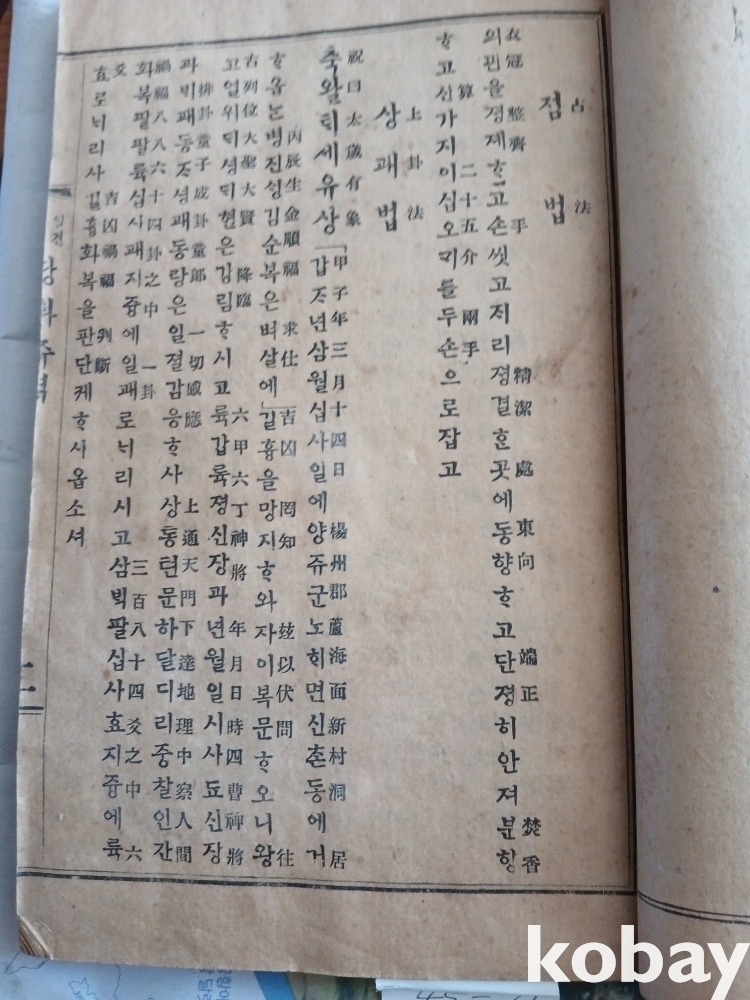 占法
점법
衣冠 整齊 手 精潔 處 東向 端正 焚香
의관을졍졔ᄒᆞ고손씻고져리졍결ᄒᆞᆫ곳에동향ᄒᆞ고단졍히안져분향
算 二十五介 兩手
ᄒᆞ고산가지이십오ᄀᆡ를두손으로잡고
上卦法
상괘법
祝曰太歲有象 甲子年三月十四日 楊州郡蘆海面新村洞 居
축왈ᄐᆡ세유상「갑ᄌᆞ년삼월십사일에양쥬군노ᄒᆡ면신촌동에거
丙辰生金順福 求仕 吉凶 罔知 玆以伏問 往
ᄒᆞ옵ᄂᆞᆫ병진성김순복은벼살에」길흉을망지ᄒᆞ와자이복문ᄒᆞ오니왕
古列位大聖大賢 降臨 六甲六丁神將 年月日時四曹神將
고열위ᄃᆡ셩ᄃᆡ현은강림ᄒᆞ시고륙갑륙졍신장과년월일시사됴신장
排卦童子成卦童郎 一切感應 上通天門下達地理中察人間
과ᄇᆡ괘동ᄌᆞ셩괘동랑은일졀감응ᄒᆞ사상통텬문하달디리중찰인간
禍福八八六十四卦之中 一卦 三百八十四爻之中 六
화복팔팔륙십사괘지즁에일괘로ᄂᆡ리시고삼ᄇᆡᆨ팔십사효지즁에륙
爻 吉凶禍福 判斷
효로ᄂᆡ리사길흉화복을판단케ᄒᆞ시옵소셔
주역
二
kobay